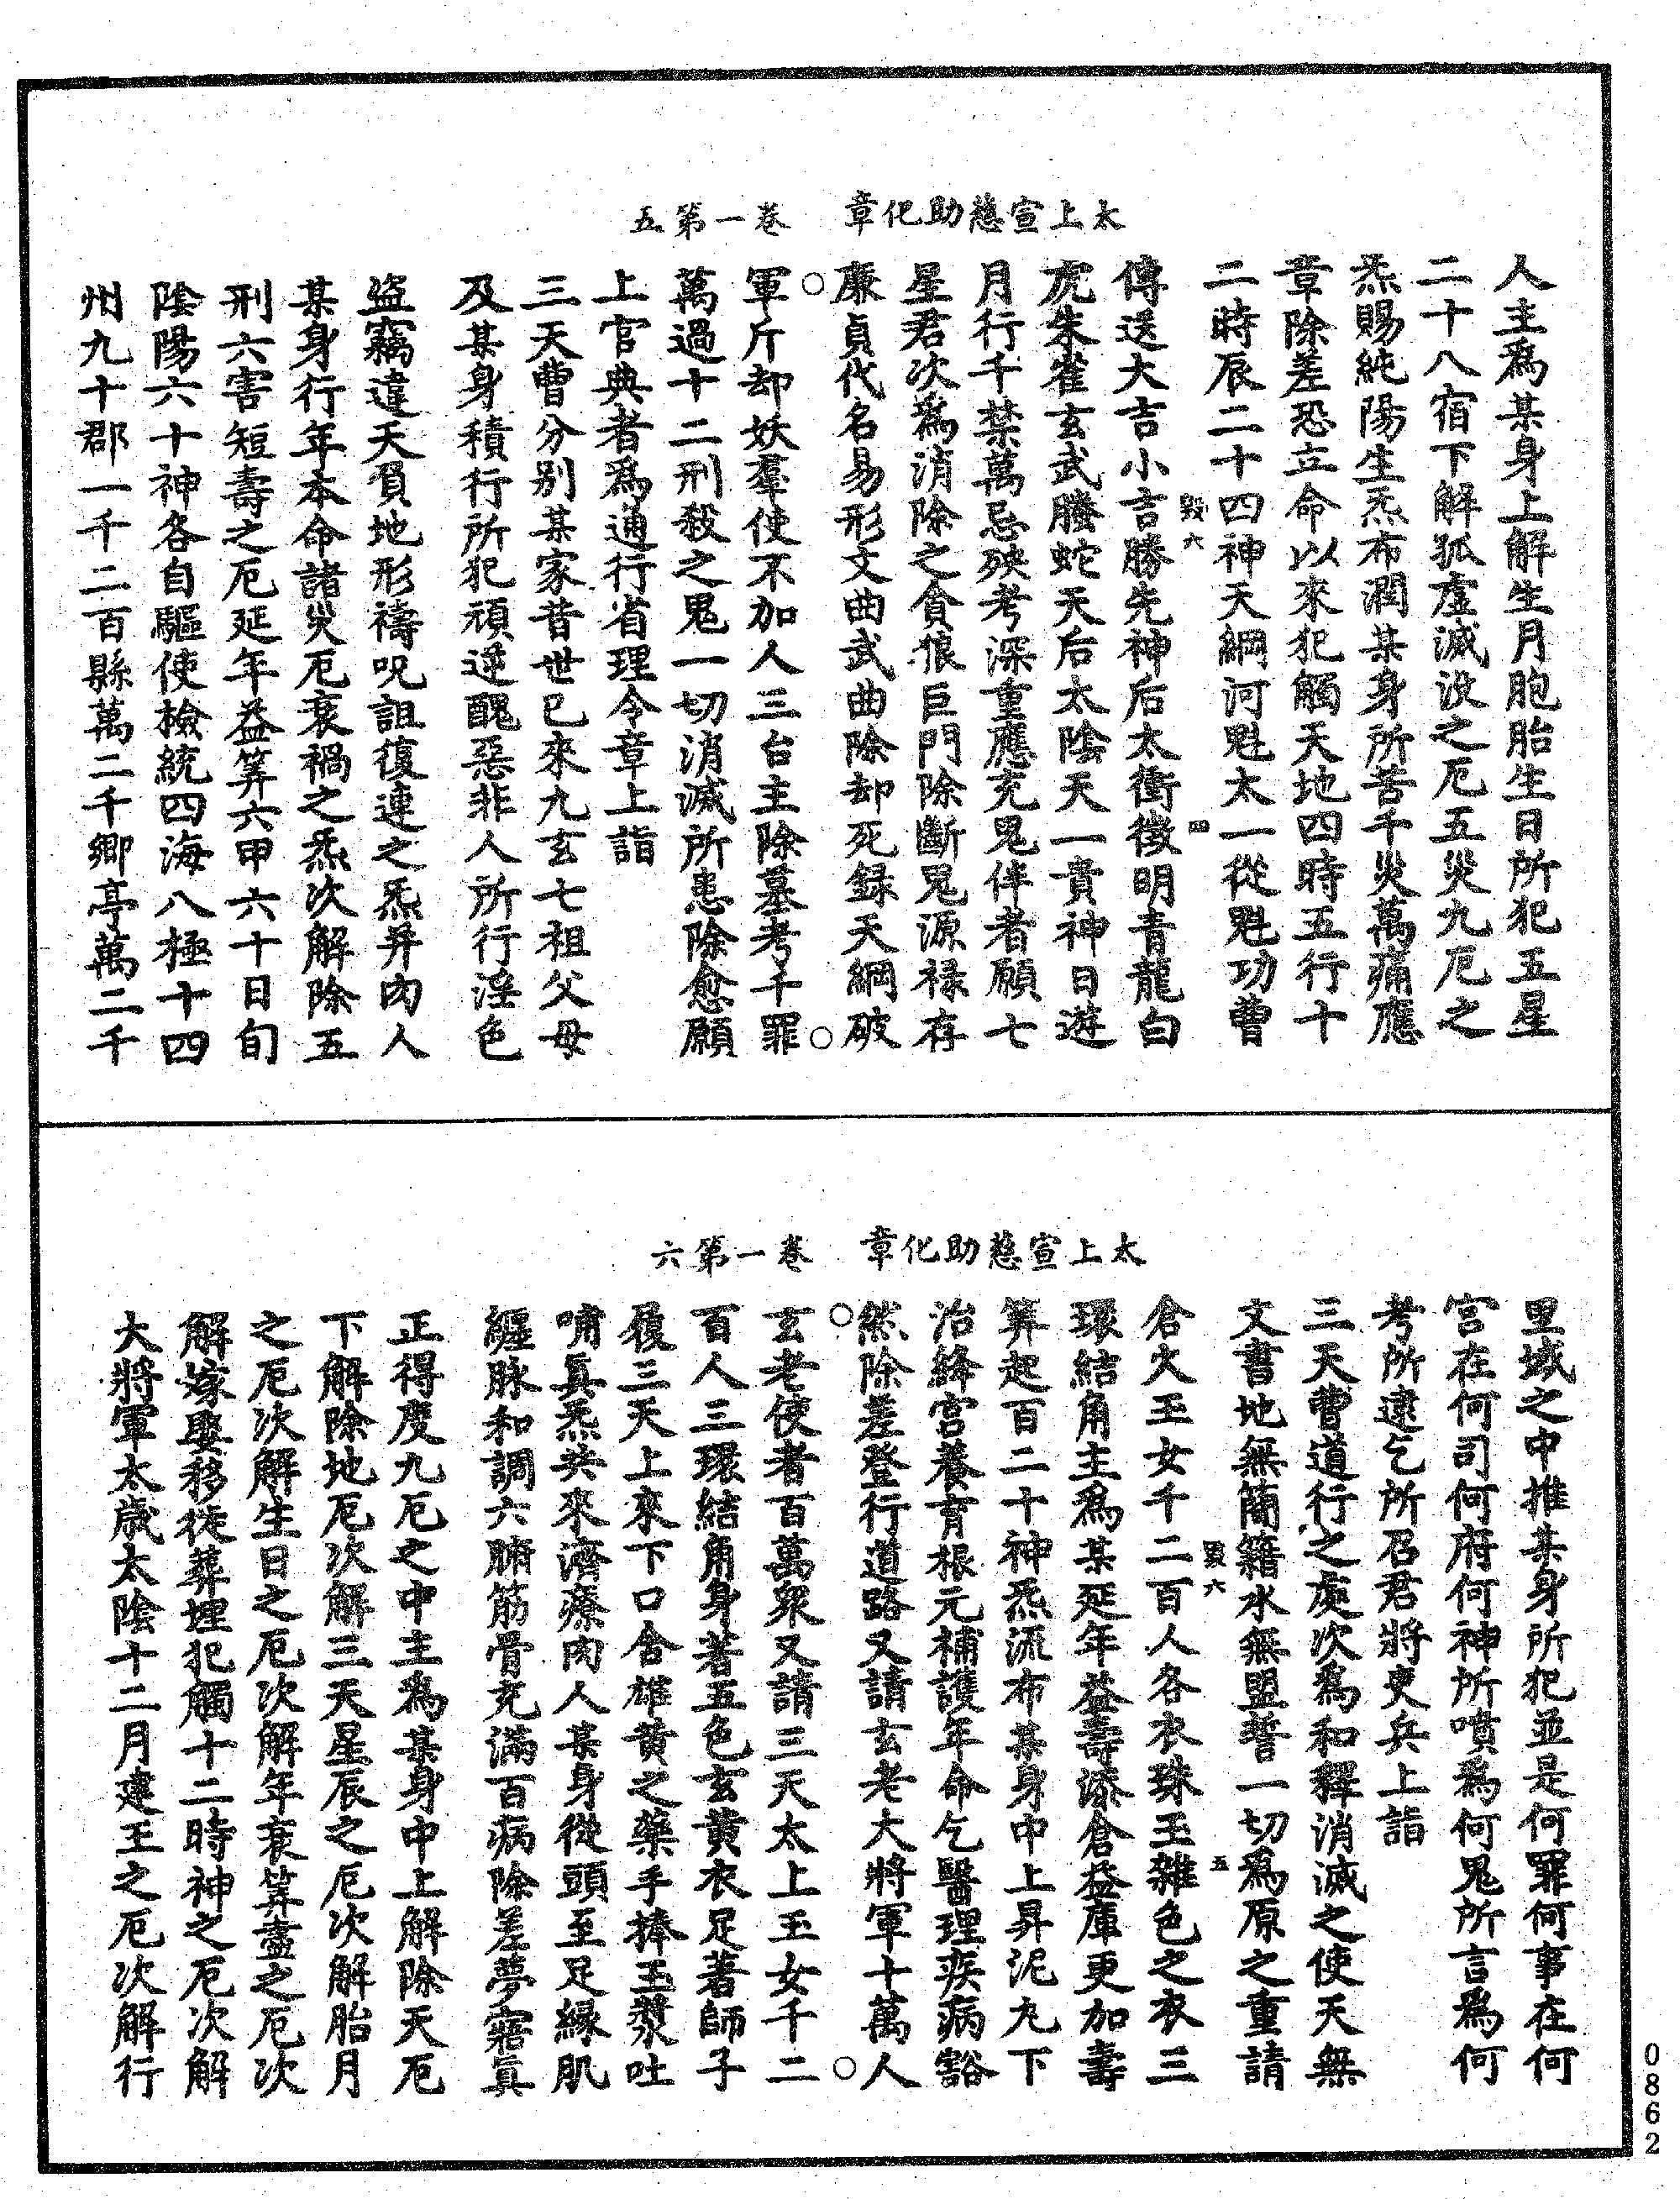 太上宣慈助化章　卷一第五
人主爲某身上解生月胞胎生日所犯五星
二十八宿下解狐虛滅没之厄五災九厄之
炁賜純陽生炁布潤某身所苦千災萬痛應
章除差恐立命以來犯觸天地四時五行十
二時辰二十四神天綱河魁太一從魁功曹
毀六　四
傳送大吉小吉勝先神后太衝徵明青龍白
虎朱雀玄武螣蛇天后太陰天一貴神日遊
月行千禁萬忌殃考深重應充鬼伴者願七
星君次爲消除之貪狼巨門除斷鬼源禄存
廉貞代名易形文曲武曲除却死録天綱破
○　○
軍斤却妖羣使不加人三台主除墓考千罪
萬過十二刑殺之鬼一切消滅所患除愈願
上官典者爲通行省理令章上詣
三天曹分别某家昔世已來九玄七祖父母
及某身積行所犯頑逆醜惡非人所行淫色
盜竊違天負地形禱呪詛復連之炁并肉人
某身行年本命諸災厄衰禍之炁次解除五
刑六害短壽之厄延年益筭六甲六十日旬
陰陽六十神各自驅使檢統四海八極十四
州九十郡一千二百縣萬二千鄉亭萬二千
太上宣慈助化章　卷一第六
里域之中推某身所犯並是何罪何事在何
宫在何司何府何神所嗔爲何鬼所言爲何
考所逮乞所召君將吏兵上詣
三天曹道行之處次爲和釋消滅之使天無
文書地無簡籍水無盟誓一切爲原之重請
毀六　五
倉大玉女千二百人各衣珠玉雜色之衣三
環結角主爲某延年益壽添倉益庫更加壽
筭起百二十神炁流布某身中上昇泥丸下
治絳宫養育根元補護年命乞醫理疾病豁
然除差登行道路又請玄老大將軍十萬人
○　○
玄老使者百萬衆又請三天太上玉女千二
百人三環結角身著五色玄黄衣足著師子
履三天上來下口含雄黄之藥手捧玉漿吐
嘯真炁英來濟療肉人某身從頭至足緣肌
纒脉和調六腑筋骨充滿百病除差夢寤真
正得度九厄之中主爲某身中上解除天厄
下解除地厄次解三天星辰之厄次解胎月
之厄次解生日之厄次解年衰筭盡之厄次
解嫁娶移徙葬埋犯觸十二時神之厄次解
大將軍太歲太陰十二月建王之厄次解行
0862